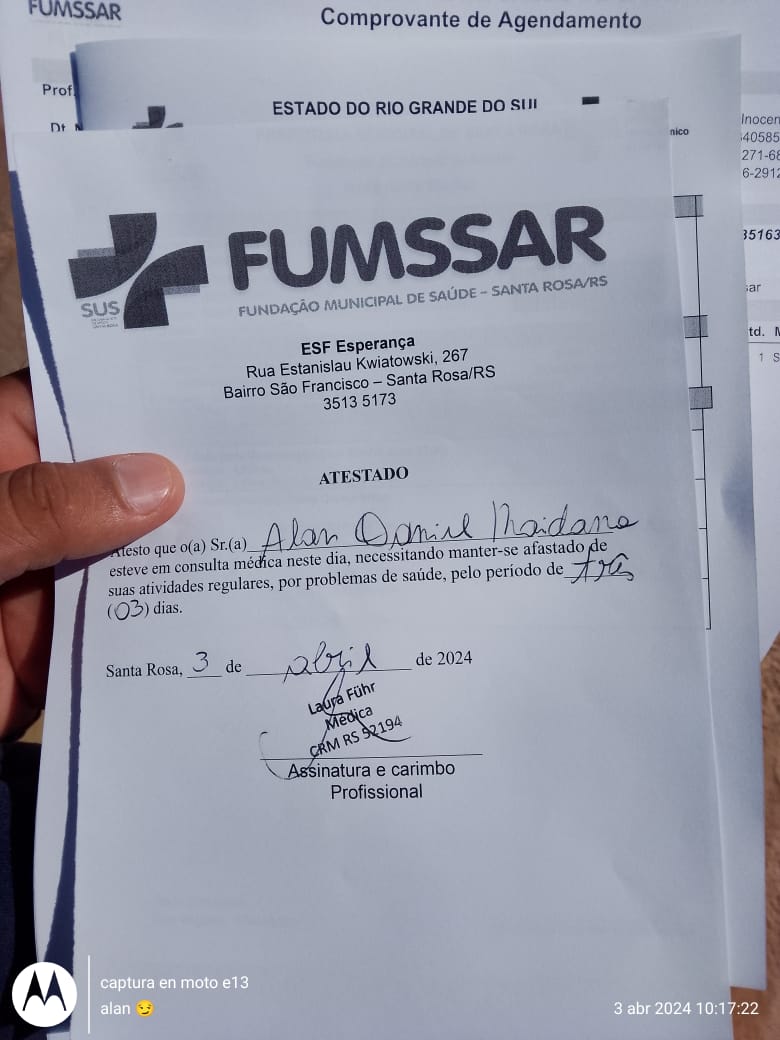 FUMSSAR
Comprovante de Agendamento
Prof.
Dt.
ESTADO DO RIO GRANDE DO SUL
nico
Inocen
40585
271-68
6-2912
35163
sar
td. M
1 S
FUMSSAR
SUS
FUNDAÇÃO MUNICIPAL DE SAÚDE – SANTA ROSA/RS
ESF Esperança
Rua Estanislau Kwiatowski, 267
Bairro São Francisco – Santa Rosa/RS
3513 5173
ATESTADO
Atesto que o(a) Sr.(a) Alan Daniel Maidana
esteve em consulta médica neste dia, necessitando manter-se afastado de
suas atividades regulares, por problemas de saúde, pelo período de três
(03) dias.
Santa Rosa, 3 de abril de 2024
Laura Führ
Médica
CRM RS 52194
Assinatura e carimbo
Profissional
captura en moto e13
alan 😏
3 abr 2024 10:17:22